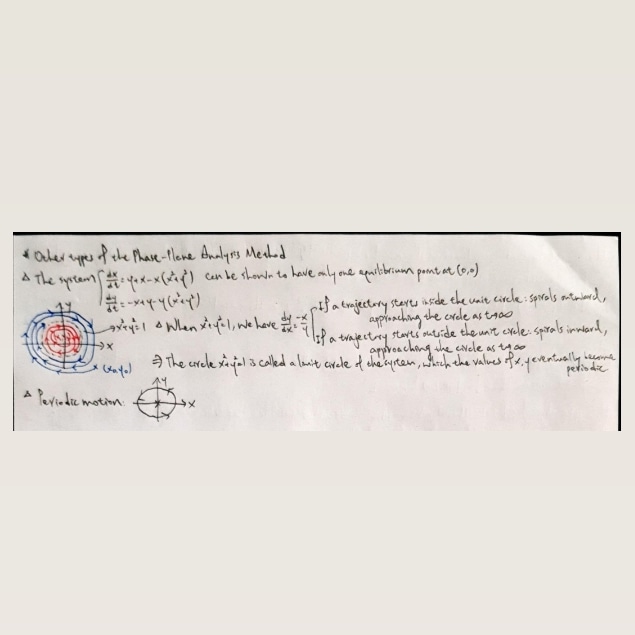 * Other types of the Phase-Plane Analysis Method
△ The system { dx/dt = y+x-x(x²+y²) can be shown to have only one equilibrium point at (0,0)
dy/dt = -x+y-y(x²+y²)
y
x
→ x²+y²=1
(x₀,y₀)
△ When x²+y²=1, we have dy/dx = -x/y
{ If a trajectory starts inside the unit circle: spirals outward,
approaching the circle as t→∞
If a trajectory starts outside the unit circle: spirals inward,
approaching the circle as t→∞
⇒ The circle x²+y²=1 is called a limit circle of the system, which the values of x, y eventually become
periodic
△ Periodic motion:
y
x